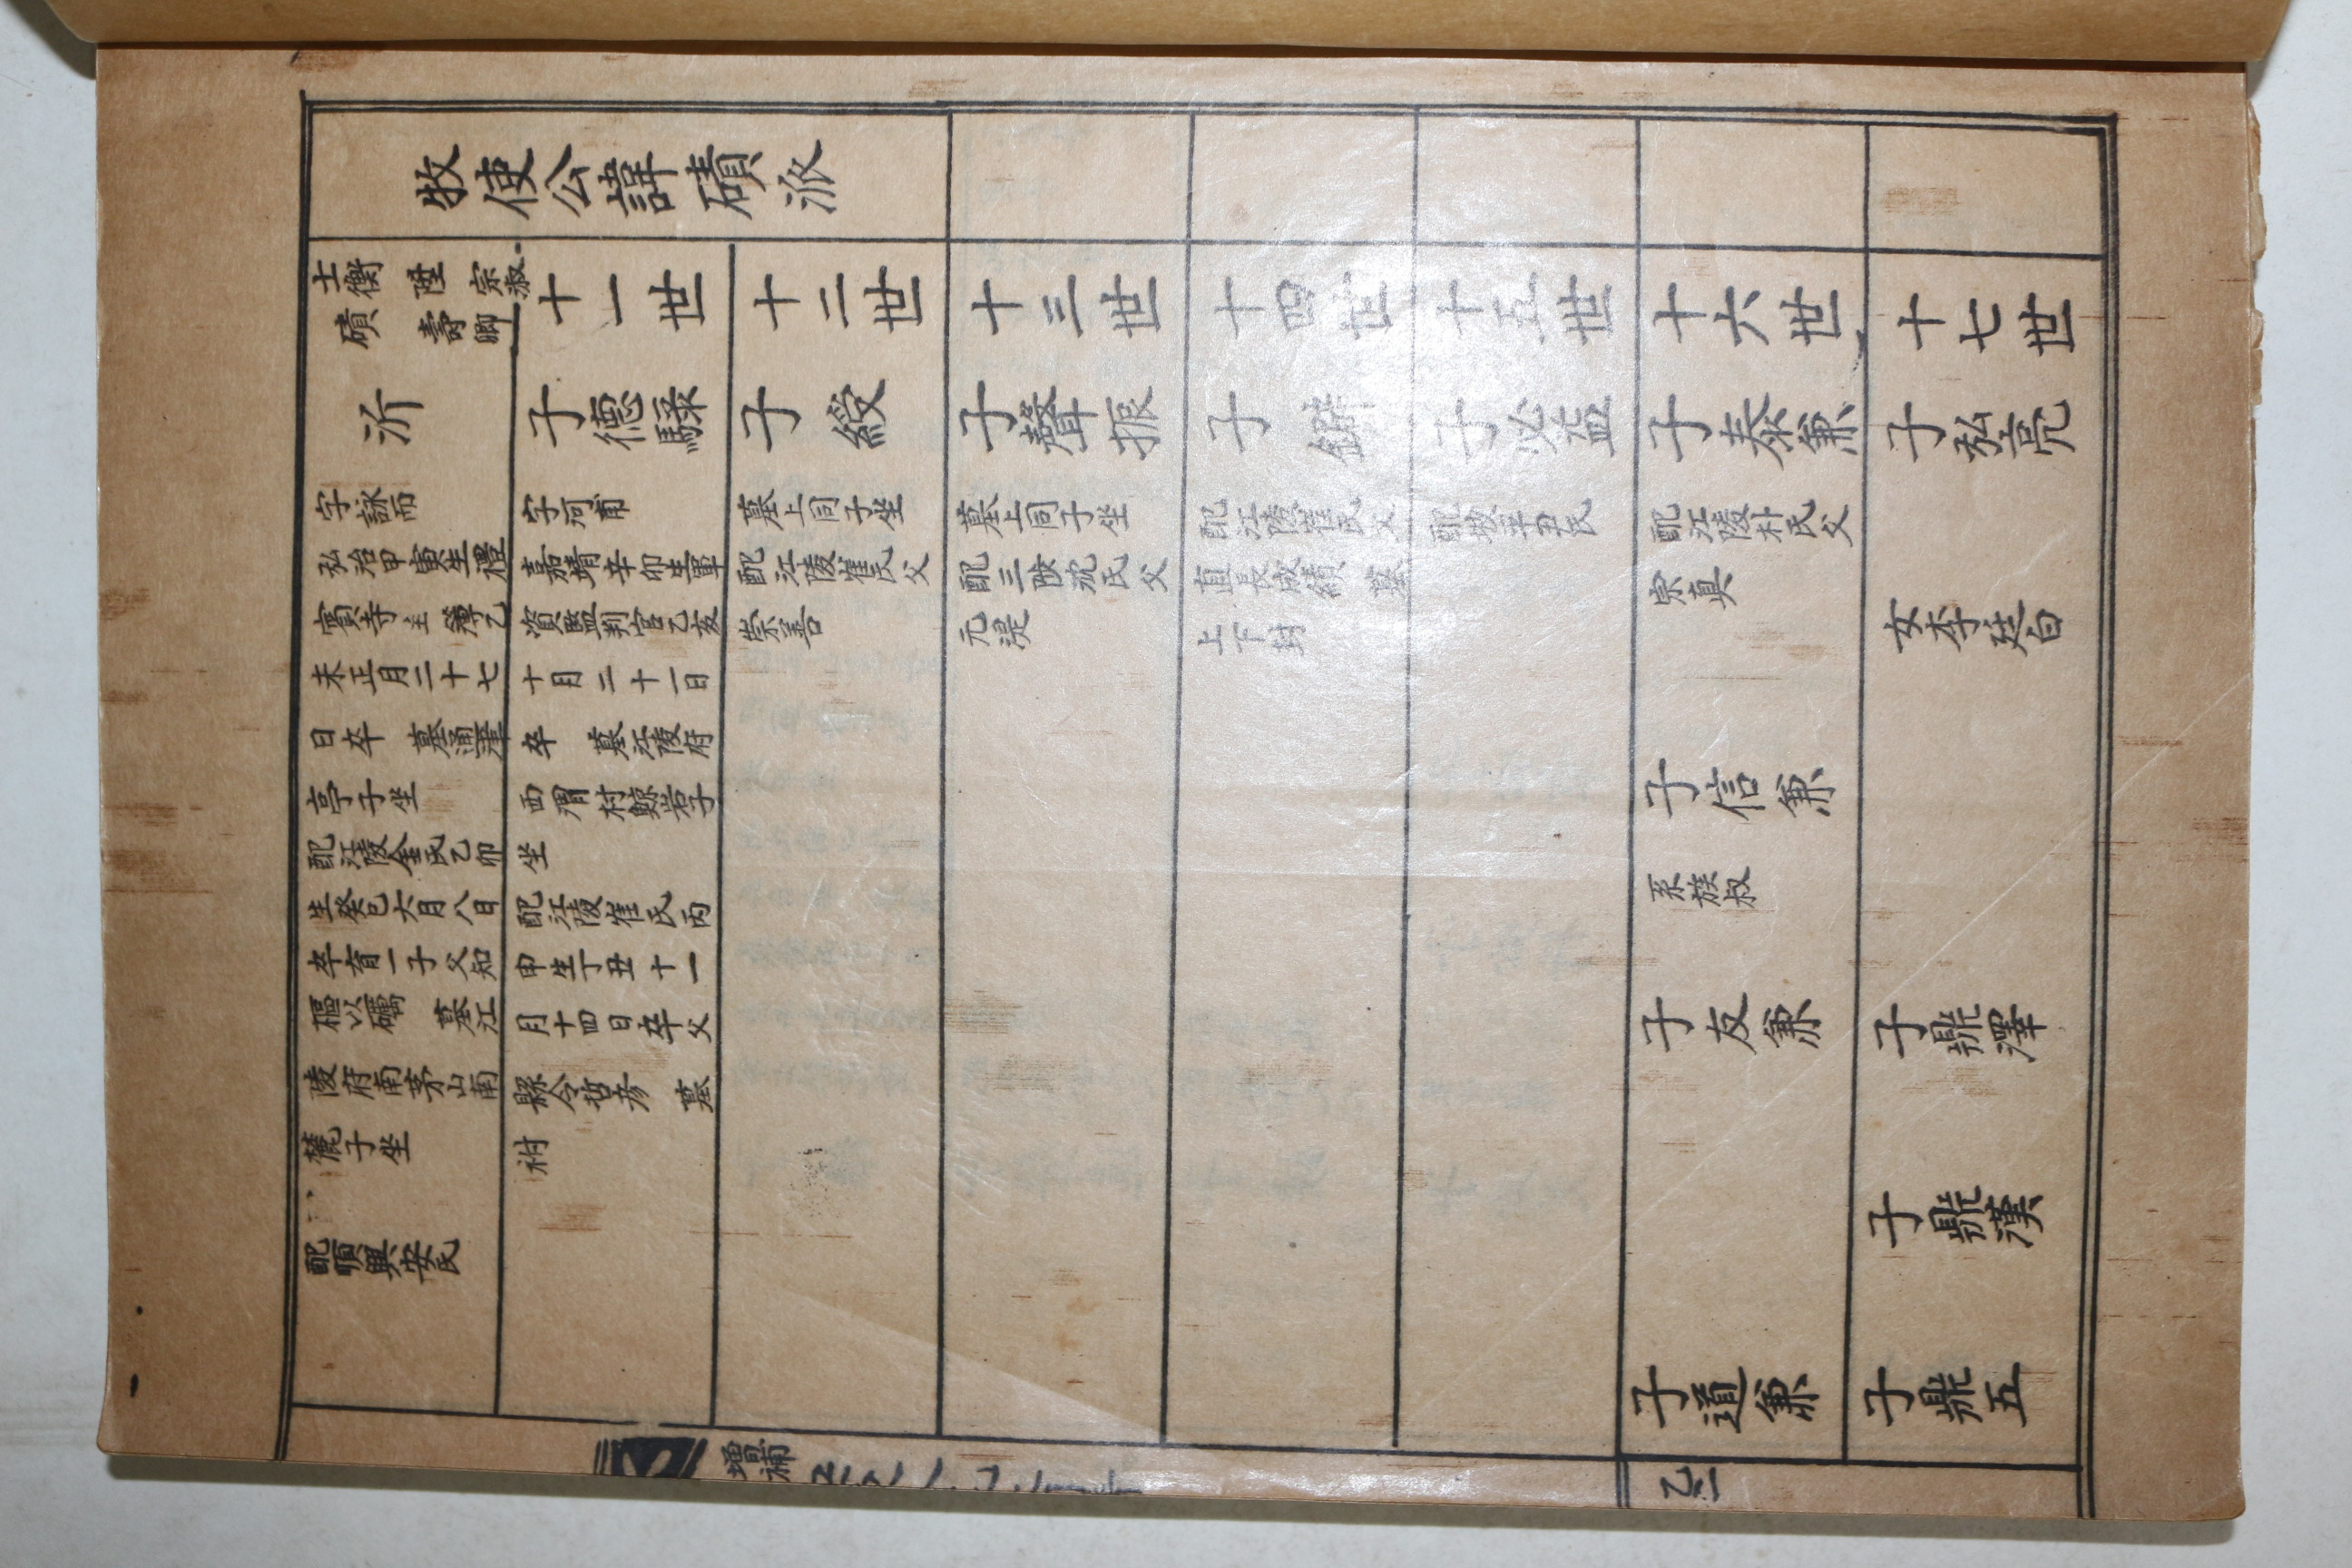 牧使公諱磧派
士衡 陞 宗淑
磧 壽卿
沂
字詠而
弘治甲寅生禮
賓寺主簿乙
未正月二十七
日卒 墓通津
亭子坐
配江陵金氏乙卯
生癸巳六月八日
卒育一子父知
樞以礪 墓江
陵府南茅山南
麓子坐
配順興安氏
十一世
子德騄
字河甫
嘉靖辛卯生軍
資監判官乙亥
十月二十一日
卒 墓江陵府
西渭村鯨岩子
坐
配江陵崔氏丙
申生丁丑十一
月十四日卒父
縣令哲彦 墓
祔
十二世
子綬
墓上同子坐
配江陵崔氏父
崇善
十三世
子聲振
墓上同子坐
配三陟沈氏父
元湜
十四世
子
配江陵崔氏父
直長成績 墓
上下封
十五世
子必益
配坡平尹氏
十六世
子泰兼
配江陵朴氏父
宗真
子信兼
系族叔
子友兼
子道兼
十七世
子弘亮
女李廷白
子鼎澤
子鼎漢
子鼎五
增補
乙二